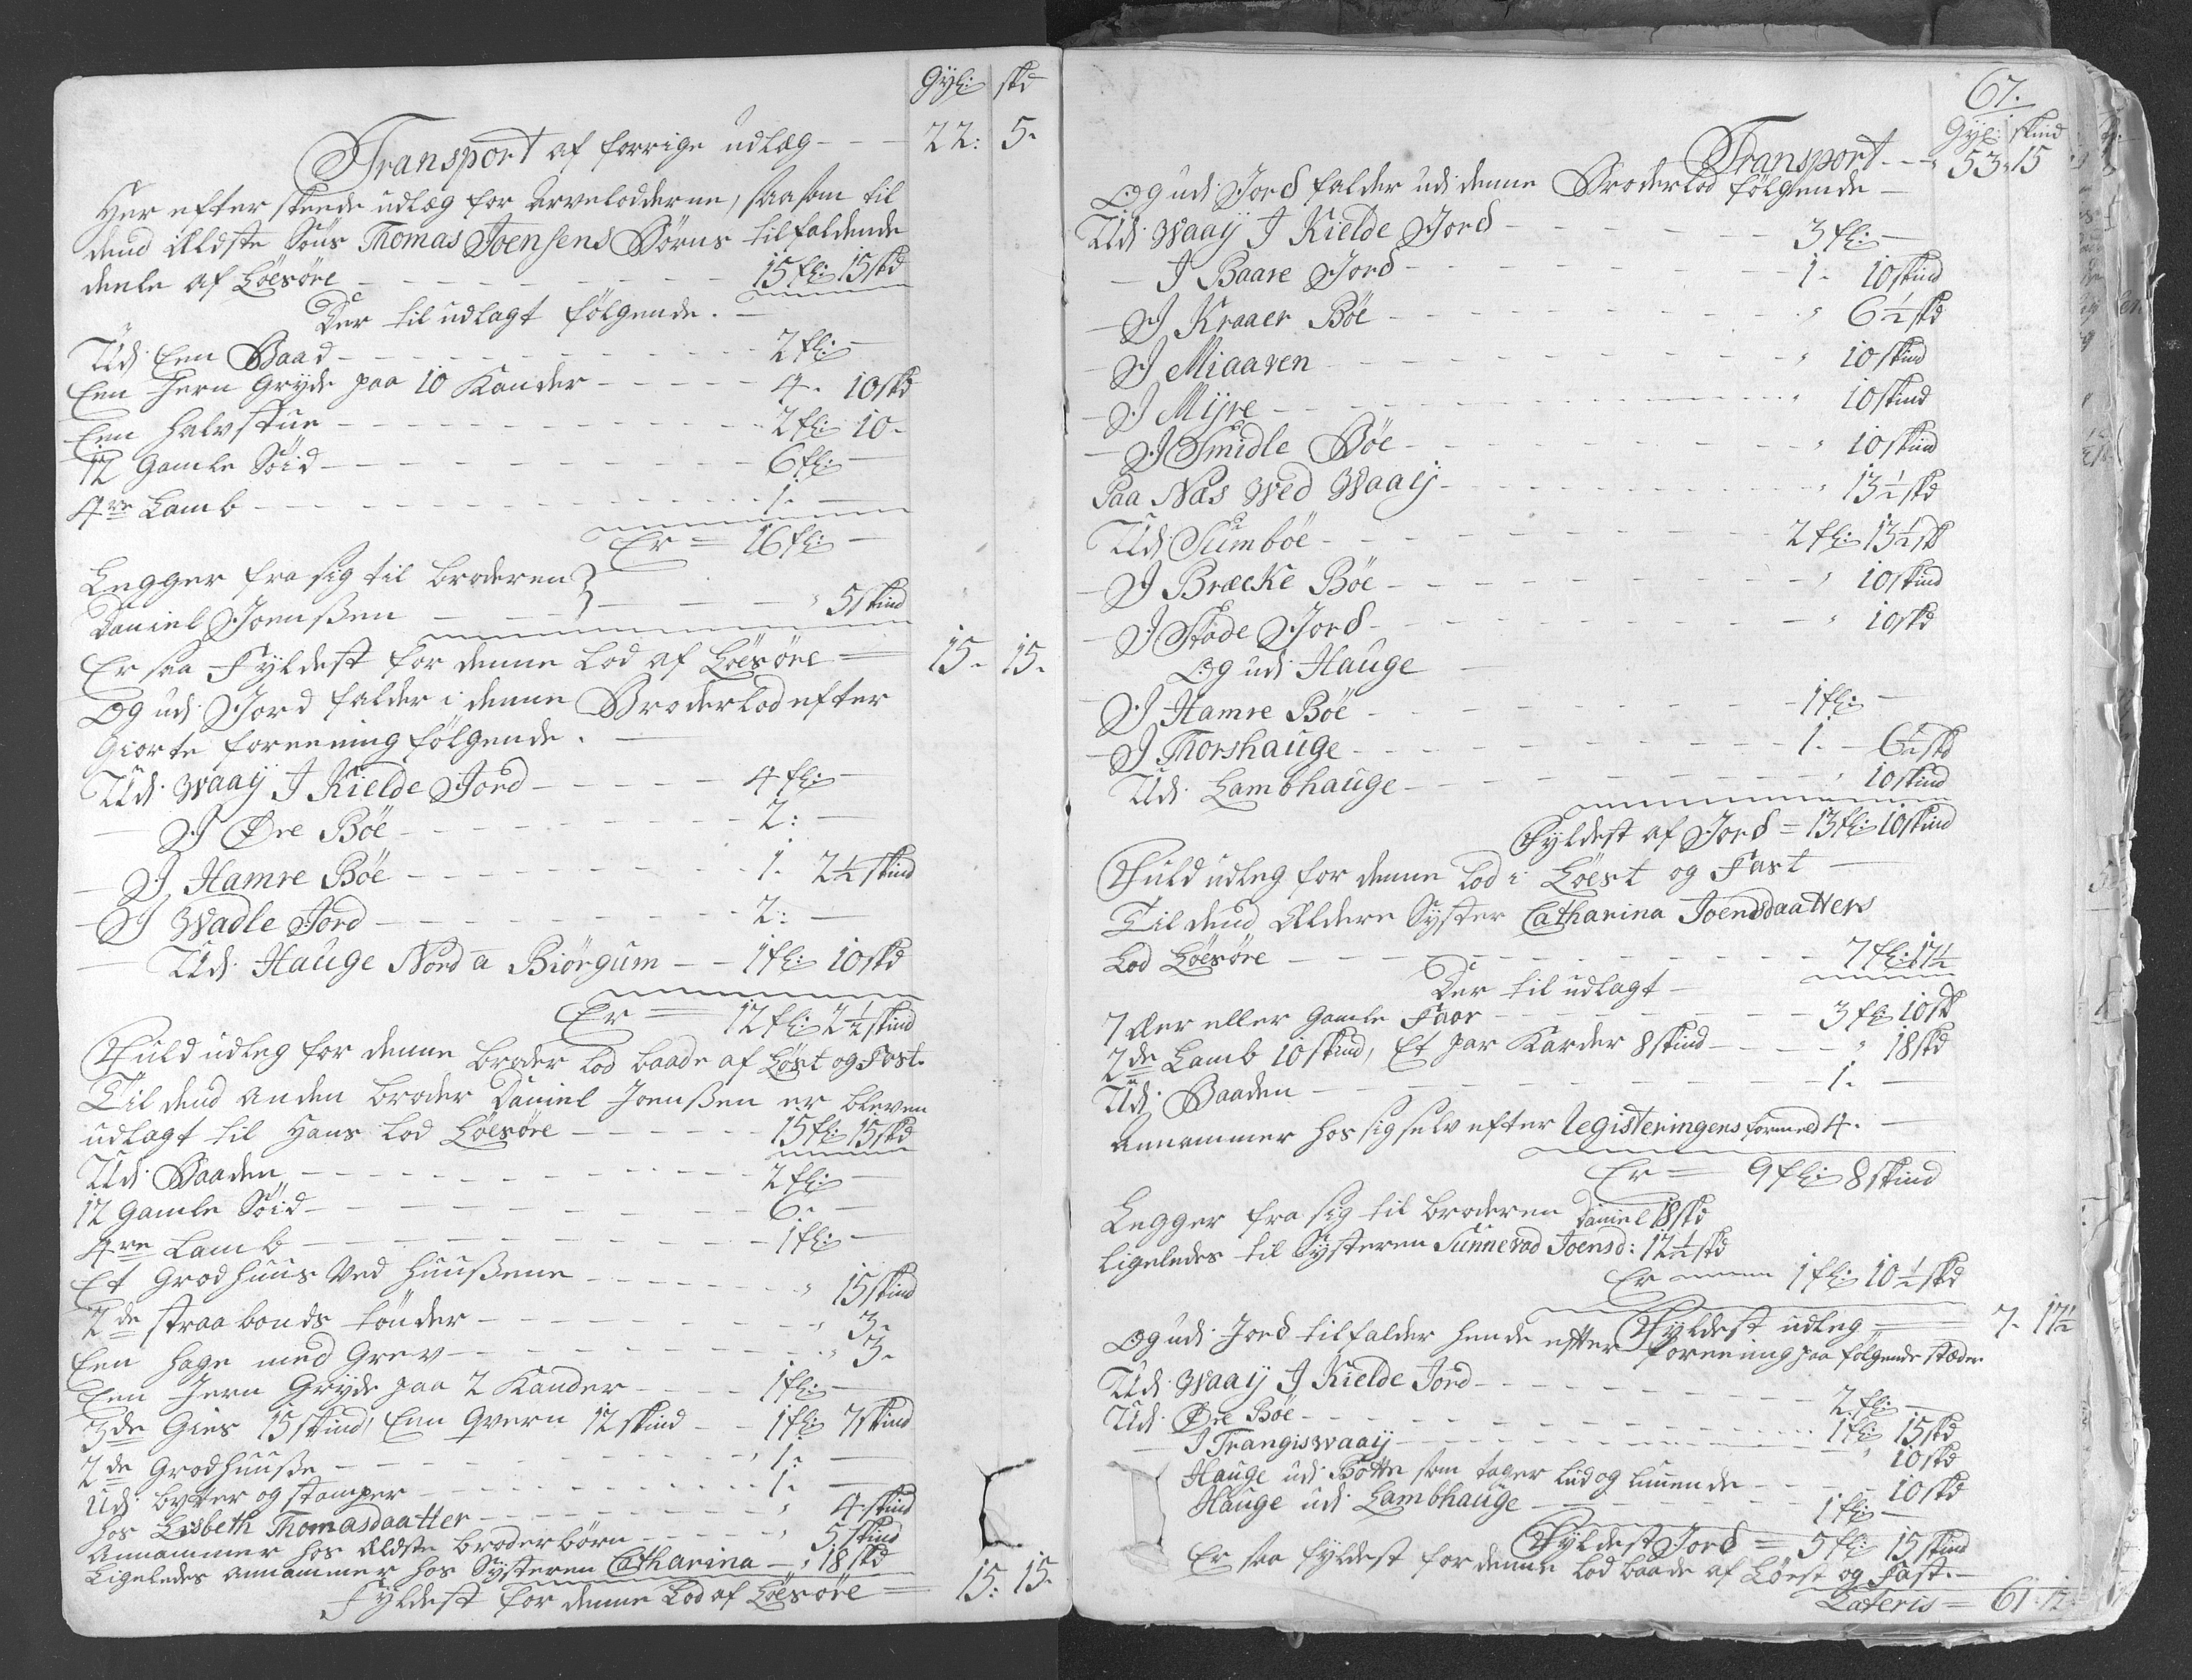 Gyl: skd
Transport af forrige udlæg - - - 22: 5.
Her efter skeede udlæg for Arvelodderne, saasom til
dend Ældste Søns Thomas Joensens Børns tilfaldende
deele af Löesöre - - - 15 fl: 15 skd
Der til udlagt følgende. -
Udi Een Baad - - - 2 fl: -
Een Jern Gryde paa 10 Kander - - - 4. 10 skd
Een halv stue - - - 2 fl: 10.
12 Gamle Söid - - - 6 fl: -
4re Lamb - - - 1. -
Er = 16 fl: -
Legger fra sig til broderen }
Daniel Joenßen - - - " 5 skind
Er saa Fyldest for denne Lod af Löesöre = 15. 15.
Og udi Jord falder i denne Broderlod efter
Giorte foreening følgende. -
Udi Waaij J Kielde Jord - - - 4 fl: -
- J Øre Böe - - - 2: -
- J Hamre Böe - - - 1. 2½ skind
- J Wadle Jord - - - 2: -
- Udi Hauge Nord a Biörgum - - 1 fl: 10 skd
Er = 12 fl: 2½ skind
Fuld udleg for denne broder Lod baade af Löst og Fast.
Til dend anden broder Daniel Joenßen er bleven
udlagt til Hans Lod Löesöre - - - 15 fl: 15 skd
Udi Baaden - - - 2 fl: -
12 Gamle Söid - - - 6. -
4re Lamb - - - 1 fl: -
Et Grodhuus Ved Huußene - - - " 15 skind
2de straa bonds tönder - - - " 3.
Een hage med Grev - - - " 3.
Een Jern Gryde paa 2 Kander - - - 1 fl: -
3de Gies 15 skind, Een qvern 12 skind - - 1 fl: 7 skind
2de Grodhuuße - - - 1. -
Udi bytter og stamper - - - 1. -
hos Lisbeth Thomasdaatter - - - " 4 skind
Annammer hos Ældste broderbörn - - - " 5 skind
Ligeledes annammer hos Systeren Catharina - " 18 skd
Fyldest for denne Lod af Löesöre = 15: 15.
67.
Gyl: skind
Transport - - - 53. 15
Og udi Jord falder udi denne Broderlod følgende -
Udi Waaij J Kielde Jord - - - 3 fl: -
- J Baare Jord - - - 1. 10 skind
- J Kraaer Böe - - - " 6½ skd
- J Miaaven - - - " 10 skind
- J Mijre - - - " 10 skind
- J Smidle Böe - - - " 10 skind
Paa Nas Wed Waaij - - - " 13½ skd
Udi Sumböe - - - 2 fl: 13½ sk
- J Bræcke Böe - - - " 10 skind
- J Stade Jord - - - " 10 skd
Og udi Hauge -
- J Hamre Böe - - - 1 fl: -
- J Thorshauge - - - 1. - 6½ skd
Udi Lambhauge - - - " 10 skind
Fyldest af Jord = 13 fl: 10 skind
Fuld udleg for denne Lod i Löest og Fast -
Til dend Ældere Syster Catharina Joensdaatters
Lod Löesöre - - - 7 fl: 17½
Der til udlagt -
7 Aer eller Gamle Faar - - - 3 fl: 10 sk
2de Lamb 10 skind, Et par Karder 8 skind - - - " 18 skd
Udi Baaden - - - 1. -
Annammer hos sig selv efter Registeringens formed 4. -
Er = 9 fl: 8 skind
Legger fra sig til broderen Daniel 18 skd
Ligeledes til Systeren Sunnevad Joensd: 12½ skd
Er 1 fl: 10½ skd
Fyldest udleg = 7. 17½
Og udi Jord tilfalder hende efter foreening paa følgende stæder
Udi Waaij J Kielde Jord - - - 2 fl: -
Udi Øre Böe - - - 1 fl: 15 skd
- J Trangiswaaij - - - " 10 skd
Hauge udi Botten som tager lud og lunende - - - 10 skd
Hauge udi Lambhauge - - - 1 fl: -
Fyldest Jord = 5 fl: 15 skind
Er saa fyldest for denne Lod baade af Löest og Fast. -
Lateris = 61. 12